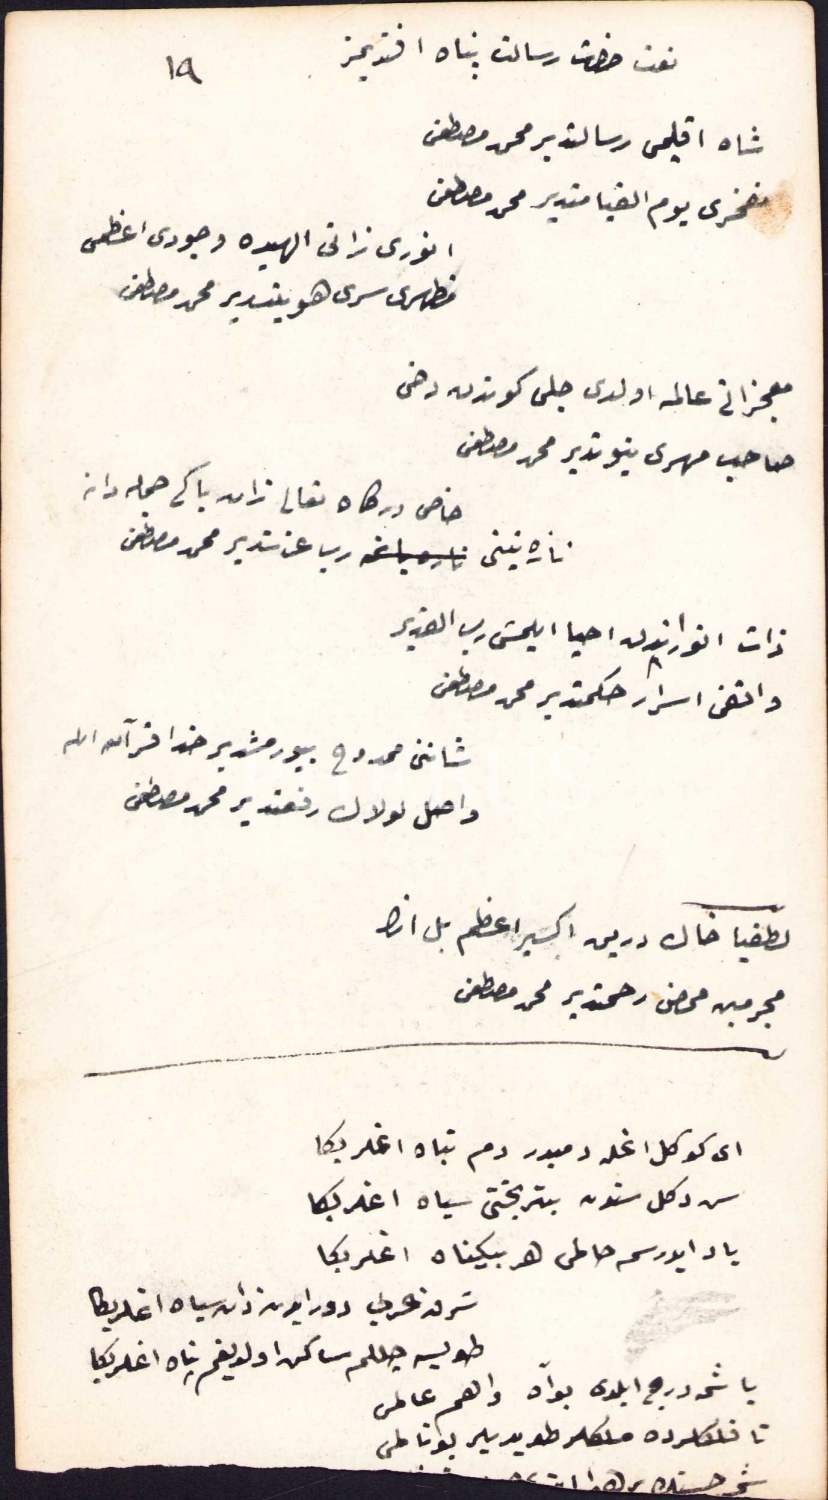 نعت حضرت رسالت پناه افندیمز
١٩
شاه اقلیمی رسالتدیر محمد مصطفی
مفخری یوم القیامتدیر محمد مصطفی
انوری ذاتی الهیده وجودی اعظمی
مظهری سری هویتدیر محمد مصطفی
معجزاتی عالمه اولدی جلی کوندن دخی
صاحب مهری نبوتدیر محمد مصطفی
خاص درکاه تعالی ذات پاکی جمله دان
نازه نینی رب عزتدیر محمد مصطفی
ذات انورندن احیا ایلمش رب القدیر
واقفی اسرار حکمتدیر محمد مصطفی
شاننی ممدوح بیورمشدیر خدا قرآن
واصل لولاك رفعتدیر محمد مصطفی
لطفیا خاك درین اکسیر اعظم بل
مجرمین محض رحمتدیر محمد مصطفی
ای کوکل اغله دمبدر دم تباه اغلر بکا
سن دکل ستون بتر بختی سیاه اغلر بکا
یاد ایدرسه حاطی هر بیکناه اغلر بکا
شرق غربی دور ایدن ذات سیاه اغلر بکا
طویسه چللم ساکن اولدیغم پناه اغلر بکا
یا شمه درج ایلدی بو آه واهم عالمی
تا فلکلرده ملکلر طویدیلر بو